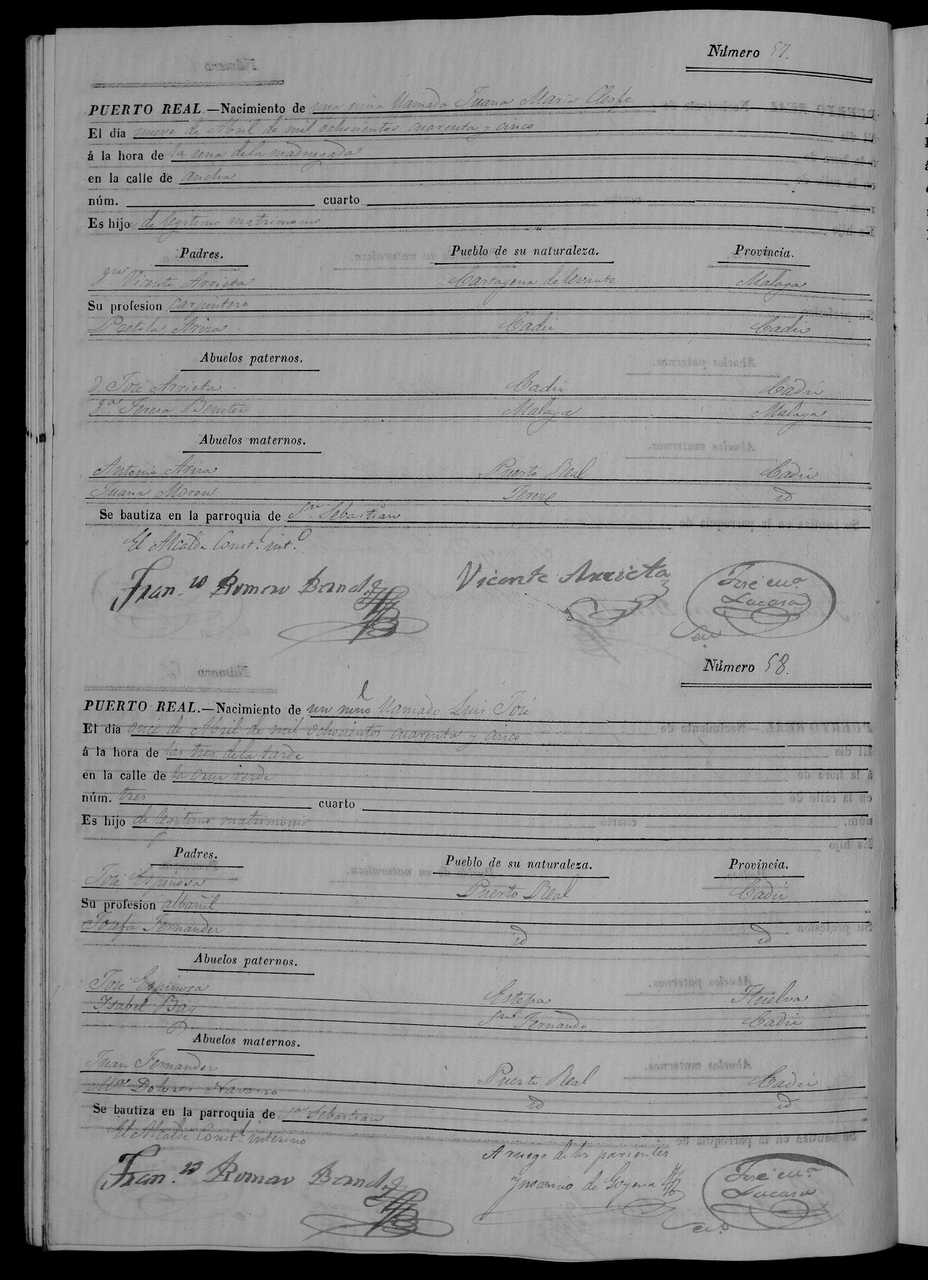 Número 57.
PUERTO REAL.—Nacimiento de una niña llamada Juana Maria
El dia nueve de Abril de mil ochocientos cuarenta y cinco
á la hora de la una de la madrugada
en la calle de ancha
núm. cuarto
Es hijo de legitimo matrimonio
Padres. Pueblo de su naturaleza. Provincia.
Vicente Arrieta Cartagena de levante Malaga
Su profesion carpintero
Ariza Cadiz Cadiz
Abuelos paternos.
José Arrieta Cadiz Cadiz
Teresa Benites Malaga Malaga
Abuelos maternos.
Antonio Ariza Puerto Real Cadiz
Juana Moron Jerez id
Se bautiza en la parroquia de Sn Sebastian
El Alcalde Constl. intº
Franco Roman
Vicente Arrieta
José
Número 58.
PUERTO REAL.—Nacimiento de un niño llamado Luis José
El dia once de Abril de mil ochocientos cuarenta y cinco
á la hora de las tres de la tarde
en la calle de la cruz verde
núm. tres cuarto
Es hijo de legitimo matrimonio
Padres. Pueblo de su naturaleza. Provincia.
José Espinosa Puerto Real Cadiz
Su profesion albañil
Josefa Fernandez id id
Abuelos paternos.
José Espinosa Estepa Huelva
Isabel Sn Fernando Cadiz
Abuelos maternos.
Juan Fernandez Puerto Real Cadiz
Mª Dolores Navarro id id
Se bautiza en la parroquia de Sn Sebastian
El Alcalde Constl. interino
A ruego de los parientes
Franco Roman
de Goyena
José